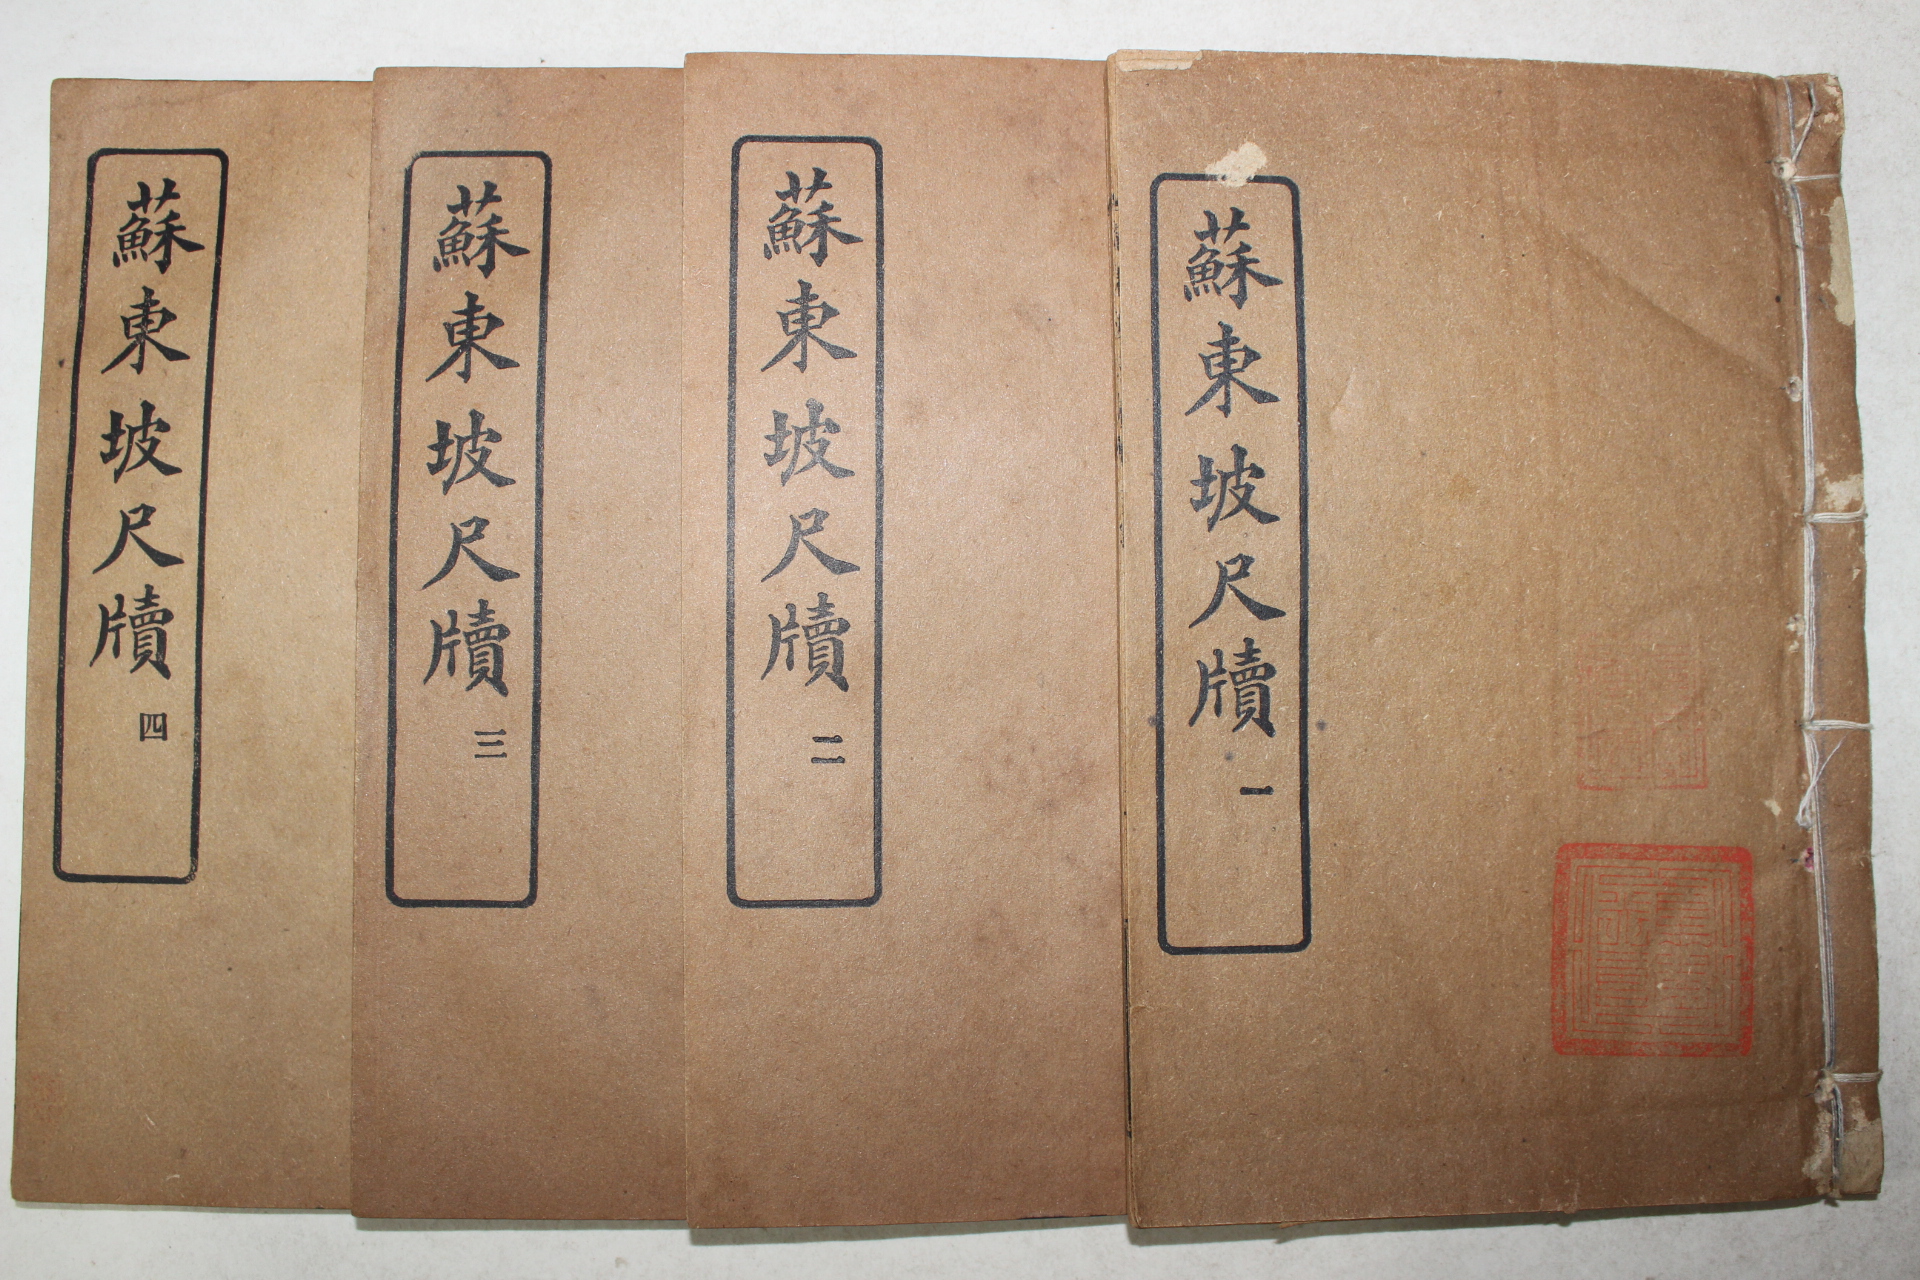 蘇東坡尺牘 一
蘇東坡尺牘 二
蘇東坡尺牘 三
蘇東坡尺牘 四